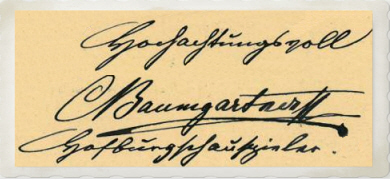 Hochachtungsvoll
CBaumgartner
Hofburgschauspieler.